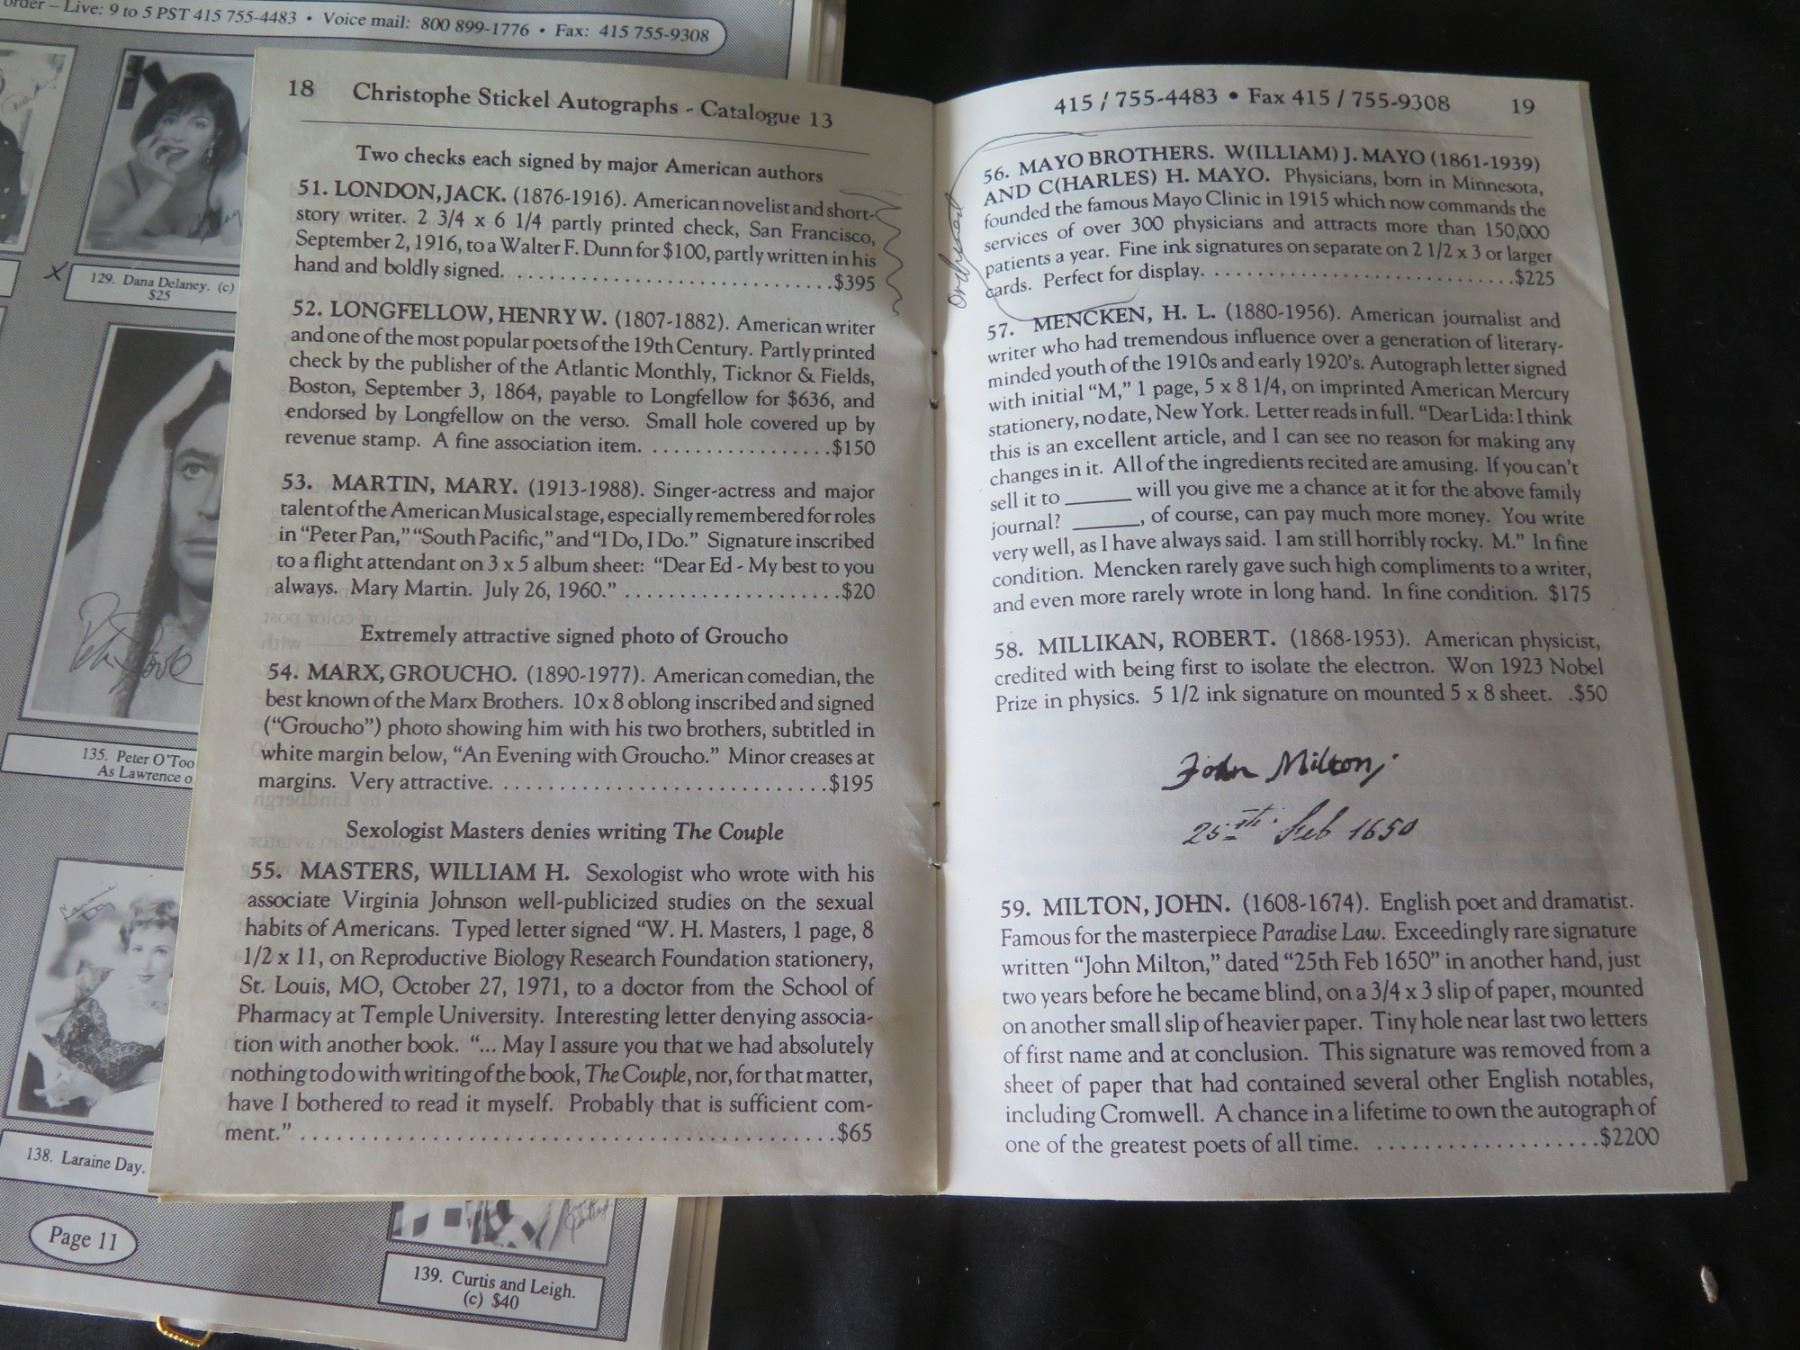 order – Live: 9 to 5 PST 415 755-4483 • Voice mail: 800 899-1776 • Fax: 415 755-9308
129. Dana Delaney. (c)
$25
135. Peter O'Too
As Lawrence o
138. Laraine Day.
Page 11
139. Curtis and Leigh.
(c) $40
18 Christophe Stickel Autographs - Catalogue 13
Two checks each signed by major American authors
51. LONDON, JACK. (1876-1916). American novelist and short-
story writer. 2 3/4 x 6 1/4 partly printed check, San Francisco,
September 2, 1916, to a Walter F. Dunn for $100, partly written in his
hand and boldly signed. ..............................$395
52. LONGFELLOW, HENRY W. (1807-1882). American writer
and one of the most popular poets of the 19th Century. Partly printed
check by the publisher of the Atlantic Monthly, Ticknor & Fields,
Boston, September 3, 1864, payable to Longfellow for $636, and
endorsed by Longfellow on the verso. Small hole covered up by
revenue stamp. A fine association item. .................$150
53. MARTIN, MARY. (1913-1988). Singer-actress and major
talent of the American Musical stage, especially remembered for roles
in "Peter Pan," "South Pacific," and "I Do, I Do." Signature inscribed
to a flight attendant on 3 x 5 album sheet: "Dear Ed - My best to you
always. Mary Martin. July 26, 1960." ....................$20
Extremely attractive signed photo of Groucho
54. MARX, GROUCHO. (1890-1977). American comedian, the
best known of the Marx Brothers. 10 x 8 oblong inscribed and signed
("Groucho") photo showing him with his two brothers, subtitled in
white margin below, "An Evening with Groucho." Minor creases at
margins. Very attractive. ..............................$195
Sexologist Masters denies writing The Couple
55. MASTERS, WILLIAM H. Sexologist who wrote with his
associate Virginia Johnson well-publicized studies on the sexual
habits of Americans. Typed letter signed "W. H. Masters, 1 page, 8
1/2 x 11, on Reproductive Biology Research Foundation stationery,
St. Louis, MO, October 27, 1971, to a doctor from the School of
Pharmacy at Temple University. Interesting letter denying associa-
tion with another book. "... May I assure you that we had absolutely
nothing to do with writing of the book, The Couple, nor, for that matter,
have I bothered to read it myself. Probably that is sufficient com-
ment." ................................................$65
415 / 755-4483 • Fax 415 / 755-9308 19
56. MAYO BROTHERS. W(ILLIAM) J. MAYO (1861-1939)
AND C(HARLES) H. MAYO. Physicians, born in Minnesota,
founded the famous Mayo Clinic in 1915 which now commands the
services of over 300 physicians and attracts more than 150,000
patients a year. Fine ink signatures on separate on 2 1/2 x 3 or larger
cards. Perfect for display. ..............................$225
57. MENCKEN, H. L. (1880-1956). American journalist and
writer who had tremendous influence over a generation of literary-
minded youth of the 1910s and early 1920's. Autograph letter signed
with initial "M," 1 page, 5 x 8 1/4, on imprinted American Mercury
stationery, no date, New York. Letter reads in full. "Dear Lida: I think
this is an excellent article, and I can see no reason for making any
changes in it. All of the ingredients recited are amusing. If you can't
sell it to ______ will you give me a chance at it for the above family
journal? ______, of course, can pay much more money. You write
very well, as I have always said. I am still horribly rocky. M." In fine
condition. Mencken rarely gave such high compliments to a writer,
and even more rarely wrote in long hand. In fine condition. $175
58. MILLIKAN, ROBERT. (1868-1953). American physicist,
credited with being first to isolate the electron. Won 1923 Nobel
Prize in physics. 5 1/2 ink signature on mounted 5 x 8 sheet. .$50
John Milton;
25th. Feb 1650
59. MILTON, JOHN. (1608-1674). English poet and dramatist.
Famous for the masterpiece Paradise Law. Exceedingly rare signature
written "John Milton," dated "25th Feb 1650" in another hand, just
two years before he became blind, on a 3/4 x 3 slip of paper, mounted
on another small slip of heavier paper. Tiny hole near last two letters
of first name and at conclusion. This signature was removed from a
sheet of paper that had contained several other English notables,
including Cromwell. A chance in a lifetime to own the autograph of
one of the greatest poets of all time. ...................$2200